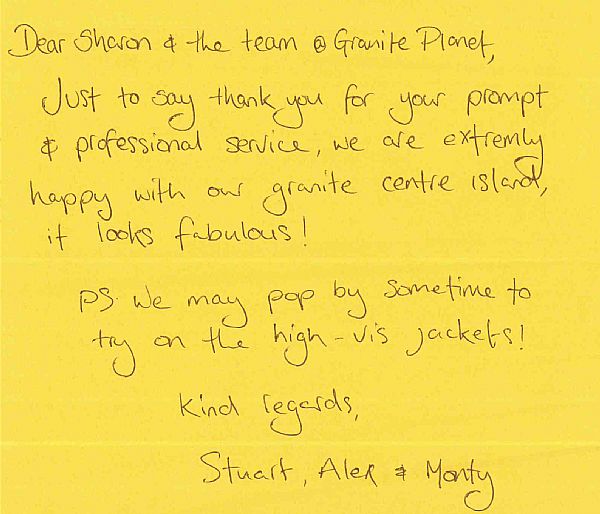 Dear Sharon & the team @ Granite Planet,
Just to say thank you for your prompt
& professional service, we are extremly
happy with our granite centre island,
it looks fabulous!
PS. We may pop by sometime to
try on the high-vis jackets!
Kind regards,
Stuart, Alex & Monty